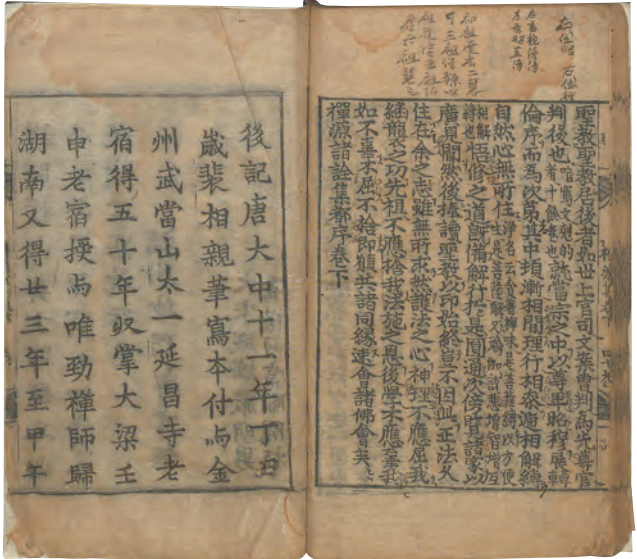 聖教聖教居後者如世上官司文案曹判為先尊官
判後也唯寫文剋的者十餘卷也就當宗之中以尊卑昭穆展轉
倫序而為次第其中頓漸相間理行相參遞相解縛
自然心無所住淨名云貪著禪味是菩薩縛以方便生是菩薩解又瑜伽說悲增智增互
相解縛也悟修之道既備解行於是圓通次傍覽諸家以
廣見聞然後捧讀聖教以印始終豈不因此正法久
住在余之志雖無所求然護法之心神理不應屈我
継襲之功先祖不應捨我法施之恩後學不應辜我
如不辜不屈不捨即願共諸同緣速會諸佛會矣
禪源諸詮集都序卷下
後記唐大中十一年丁丑
歲裴相親筆寫本付与金
州武當山太一延昌寺老
宿得五十年収掌大梁壬
申老宿授与唯勁禪師歸
湖南又得廿三年至甲午